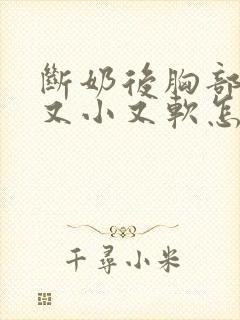 斷奶後胸部
又小又軟怎
千尋小米